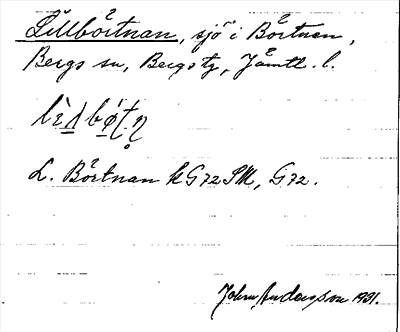 Lillbörtnan, sjö i Börtnen,
Bergs sn, Bergs tg, Jämtl. l.
L. Börtnan k G72 SM, G72.
John Andersson 1931.